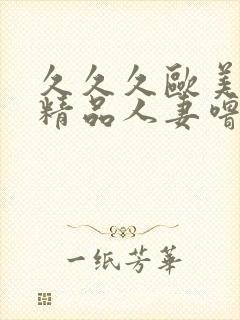 久久久歐美
精品人妻噜
一纸芳華